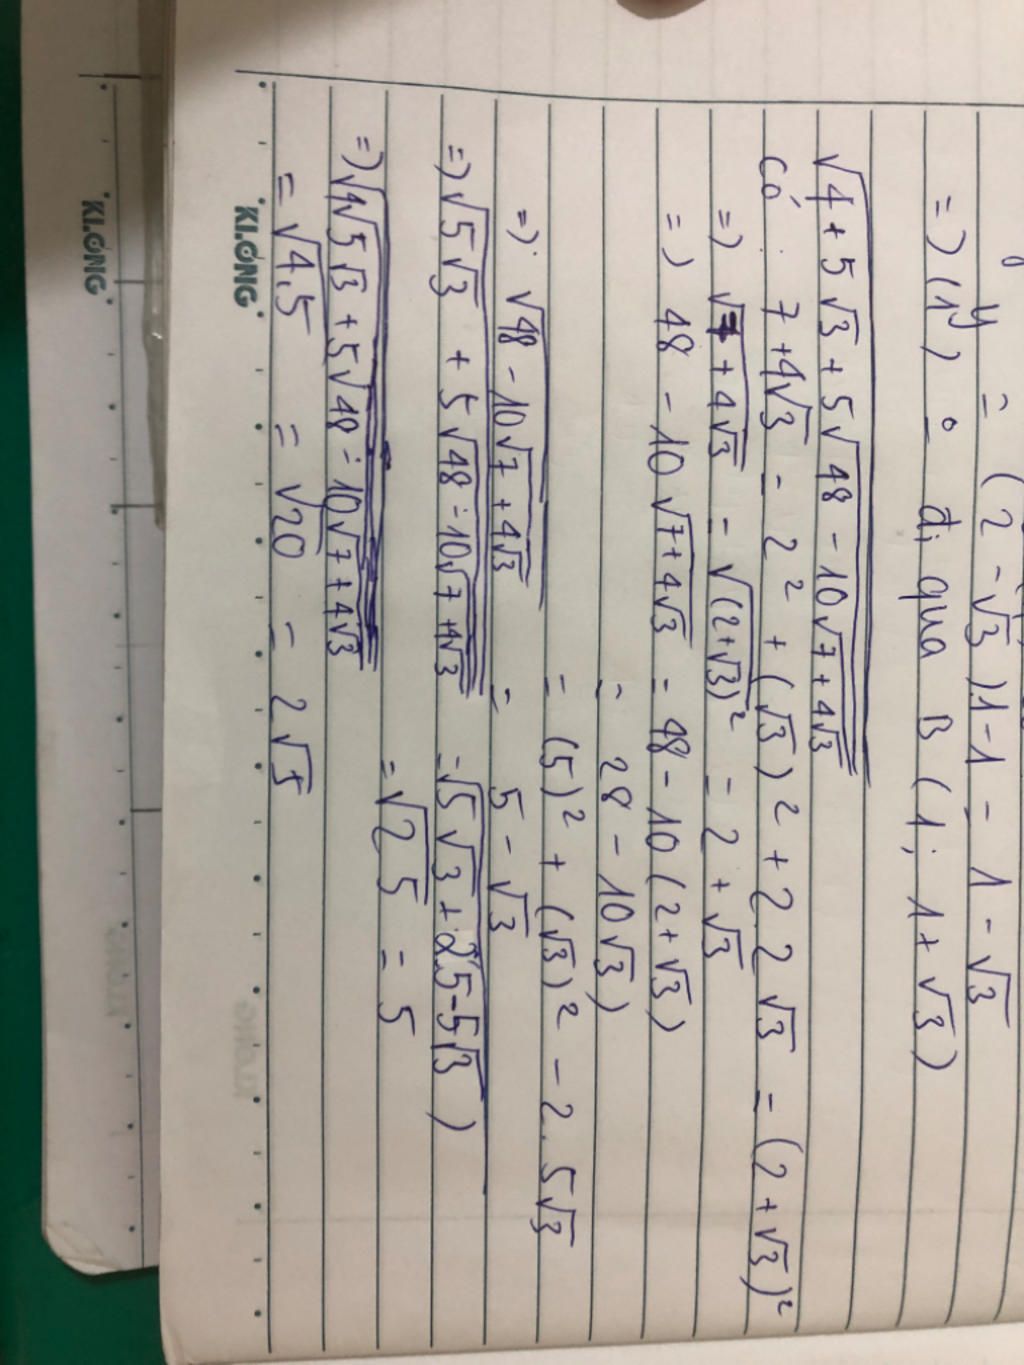 y = (2 - √3).1 - 1 - 1 - √3
=) (1) o đi qua B (1; 1 + √3)
√4 + 5√3 + 5√48 - 10√7 + 4√3
Có 7 + 4√3 = 2² + (√3)² + 2.2√3 = (2 + √3)²
=) √7 + 4√3 = √(2+√3)² = 2 + √3
=) 48 - 10√7 + 4√3 = 48 - 10(2 + √3)
= 28 - 10√3)
= (5)² + (√3)² - 2.5√3
=) √48 - 10√7 + 4√3 = 5 - √3
=) √5√3 + 5√48 - 10√7 + 4√3 = √5√3 + 25 - 5√3)
= √25 = 5
=) √4√5√3 + 5√48 - 10√7 + 4√3
= √4.5 = √20 = 2√5
KLONG
KLONG